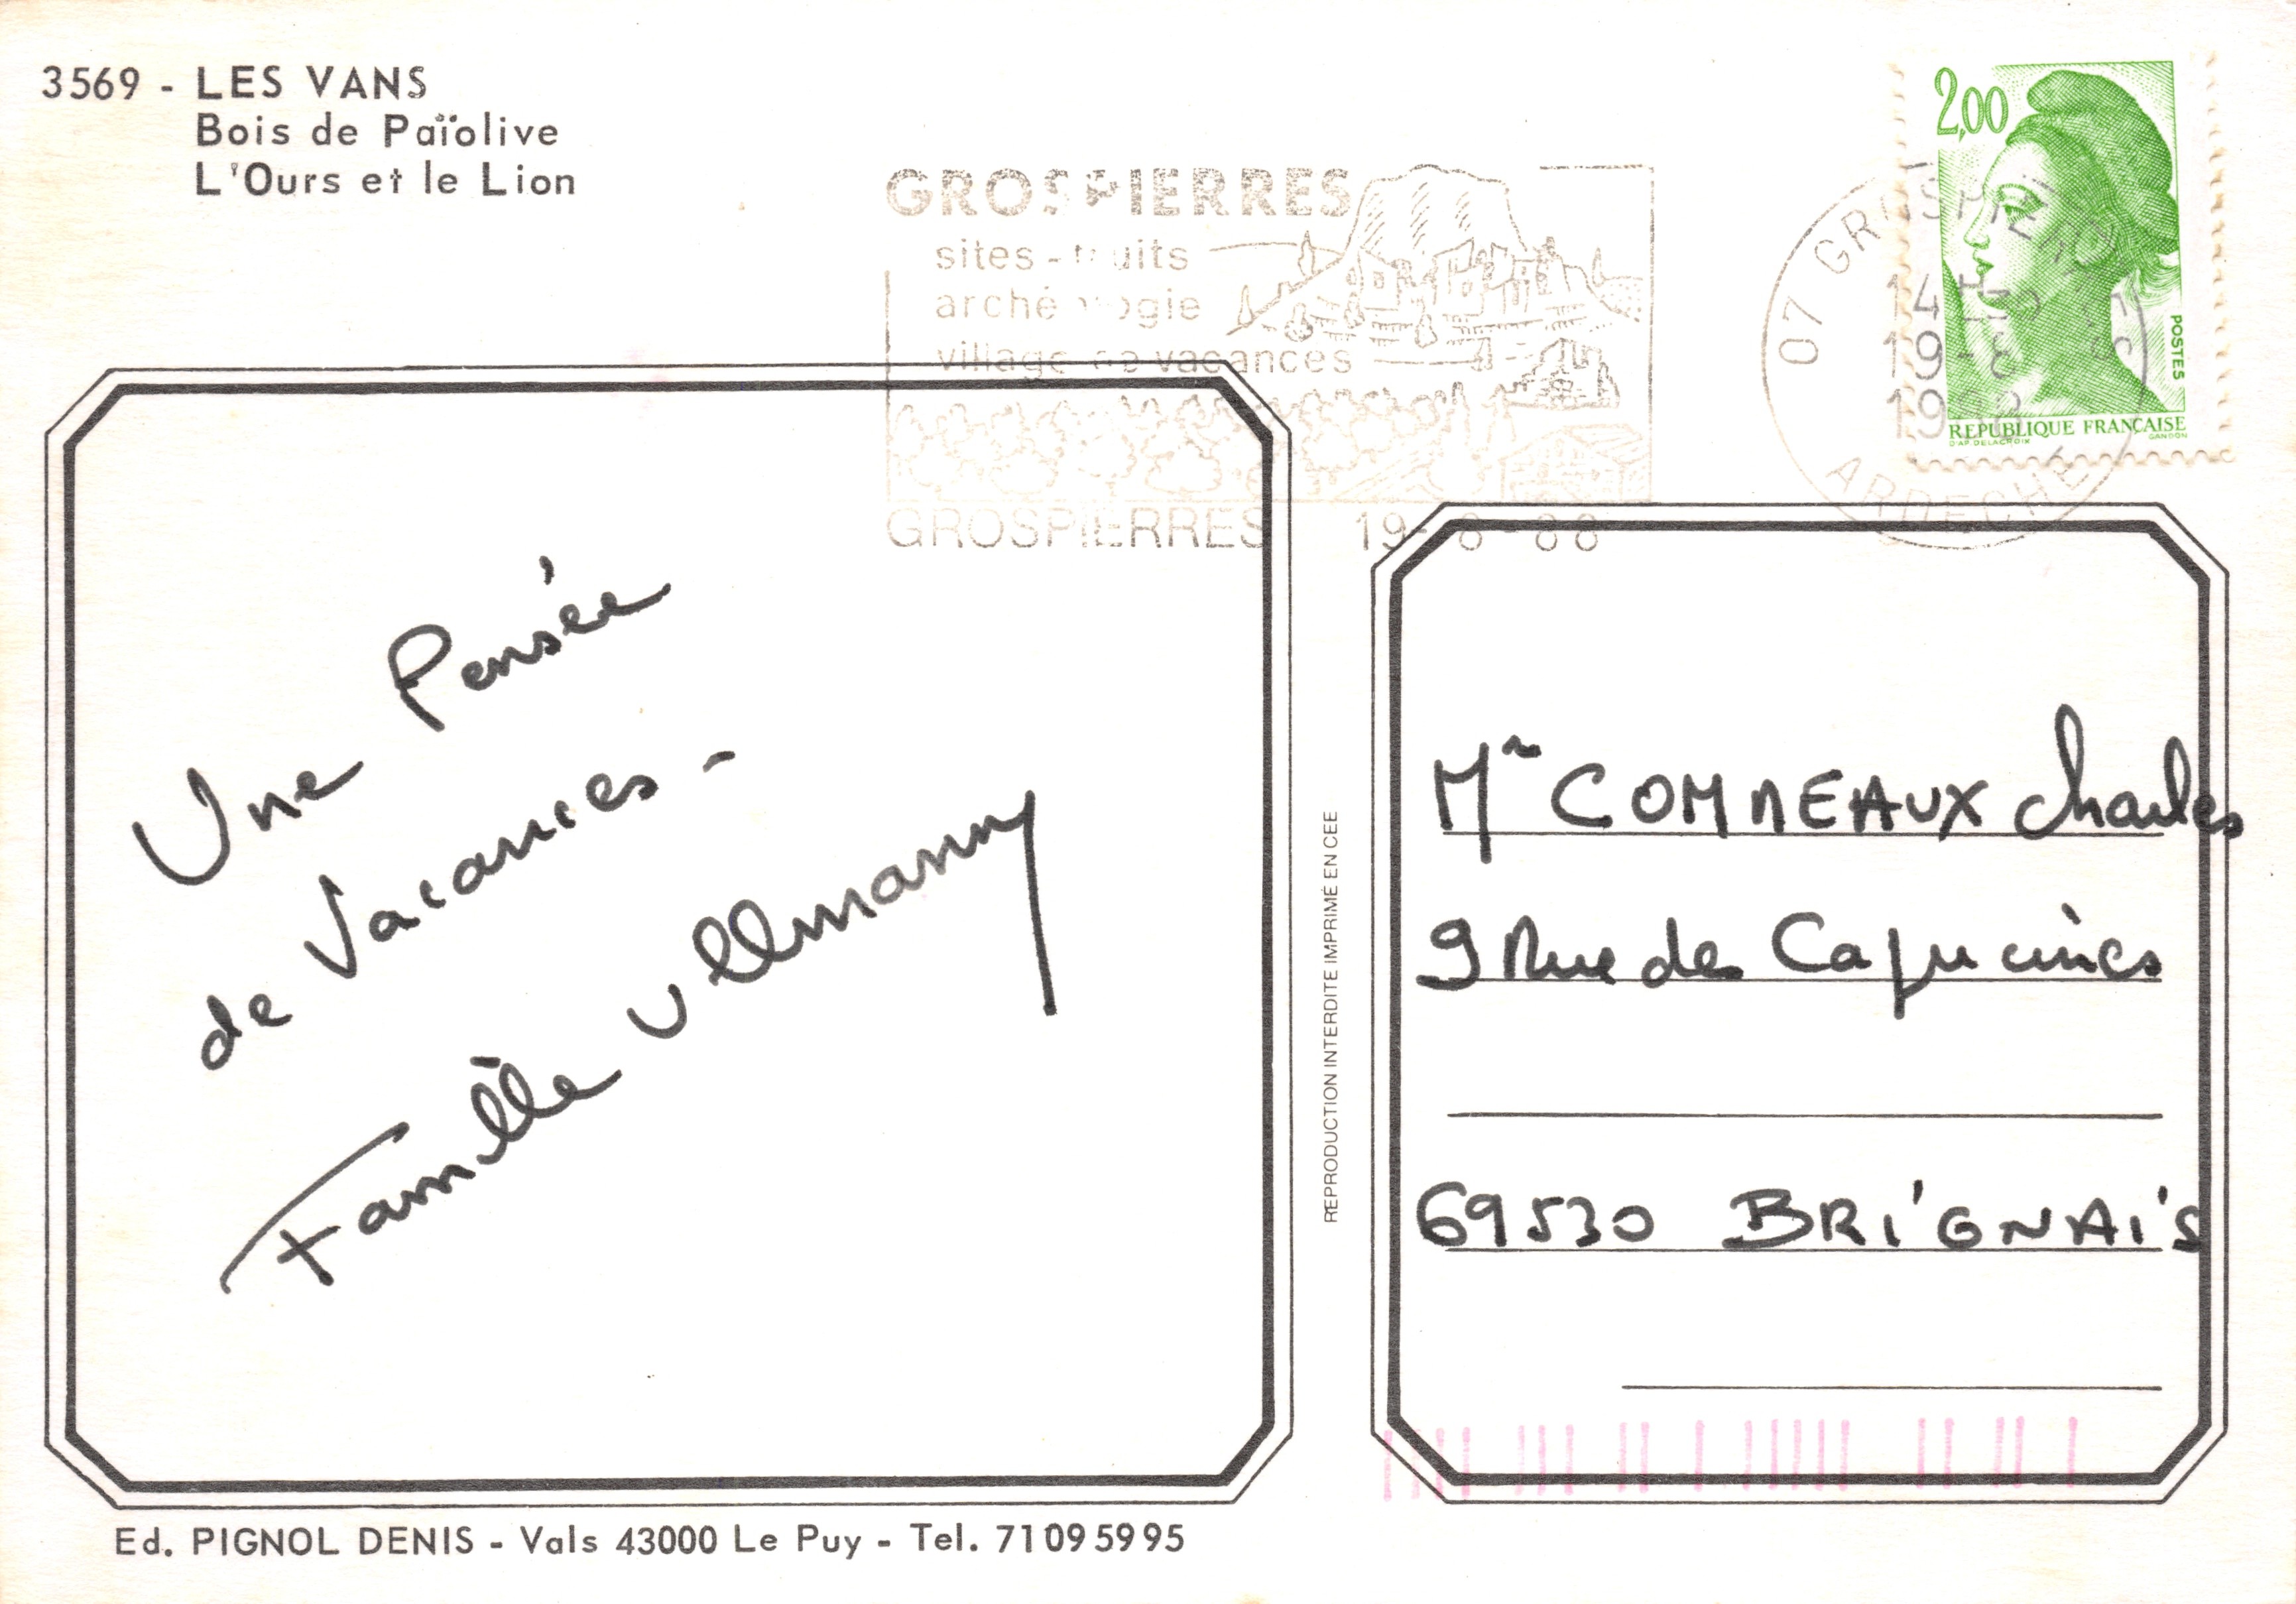 3569 - LES VANS
Bois de Païolive
L'Ours et le Lion
GROSPIERRES
sites - fruits
archéologie
village de vacances
GROSPIERRES 19-8-88
2,00
POSTES
REPUBLIQUE FRANÇAISE
D'AP. DELACROIX GANDON
07 GROSPIERRES
14H30
19-8
1988
ARDECHE
Une Pensée
de Vacances -
Famille Ullmann
Mr COMMEAUX Charles
9 Rue des Capucines
69530 BRIGNAIS
REPRODUCTION INTERDITE IMPRIMÉ EN CEE
Ed. PIGNOL DENIS - Vals 43000 Le Puy - Tel. 71095995